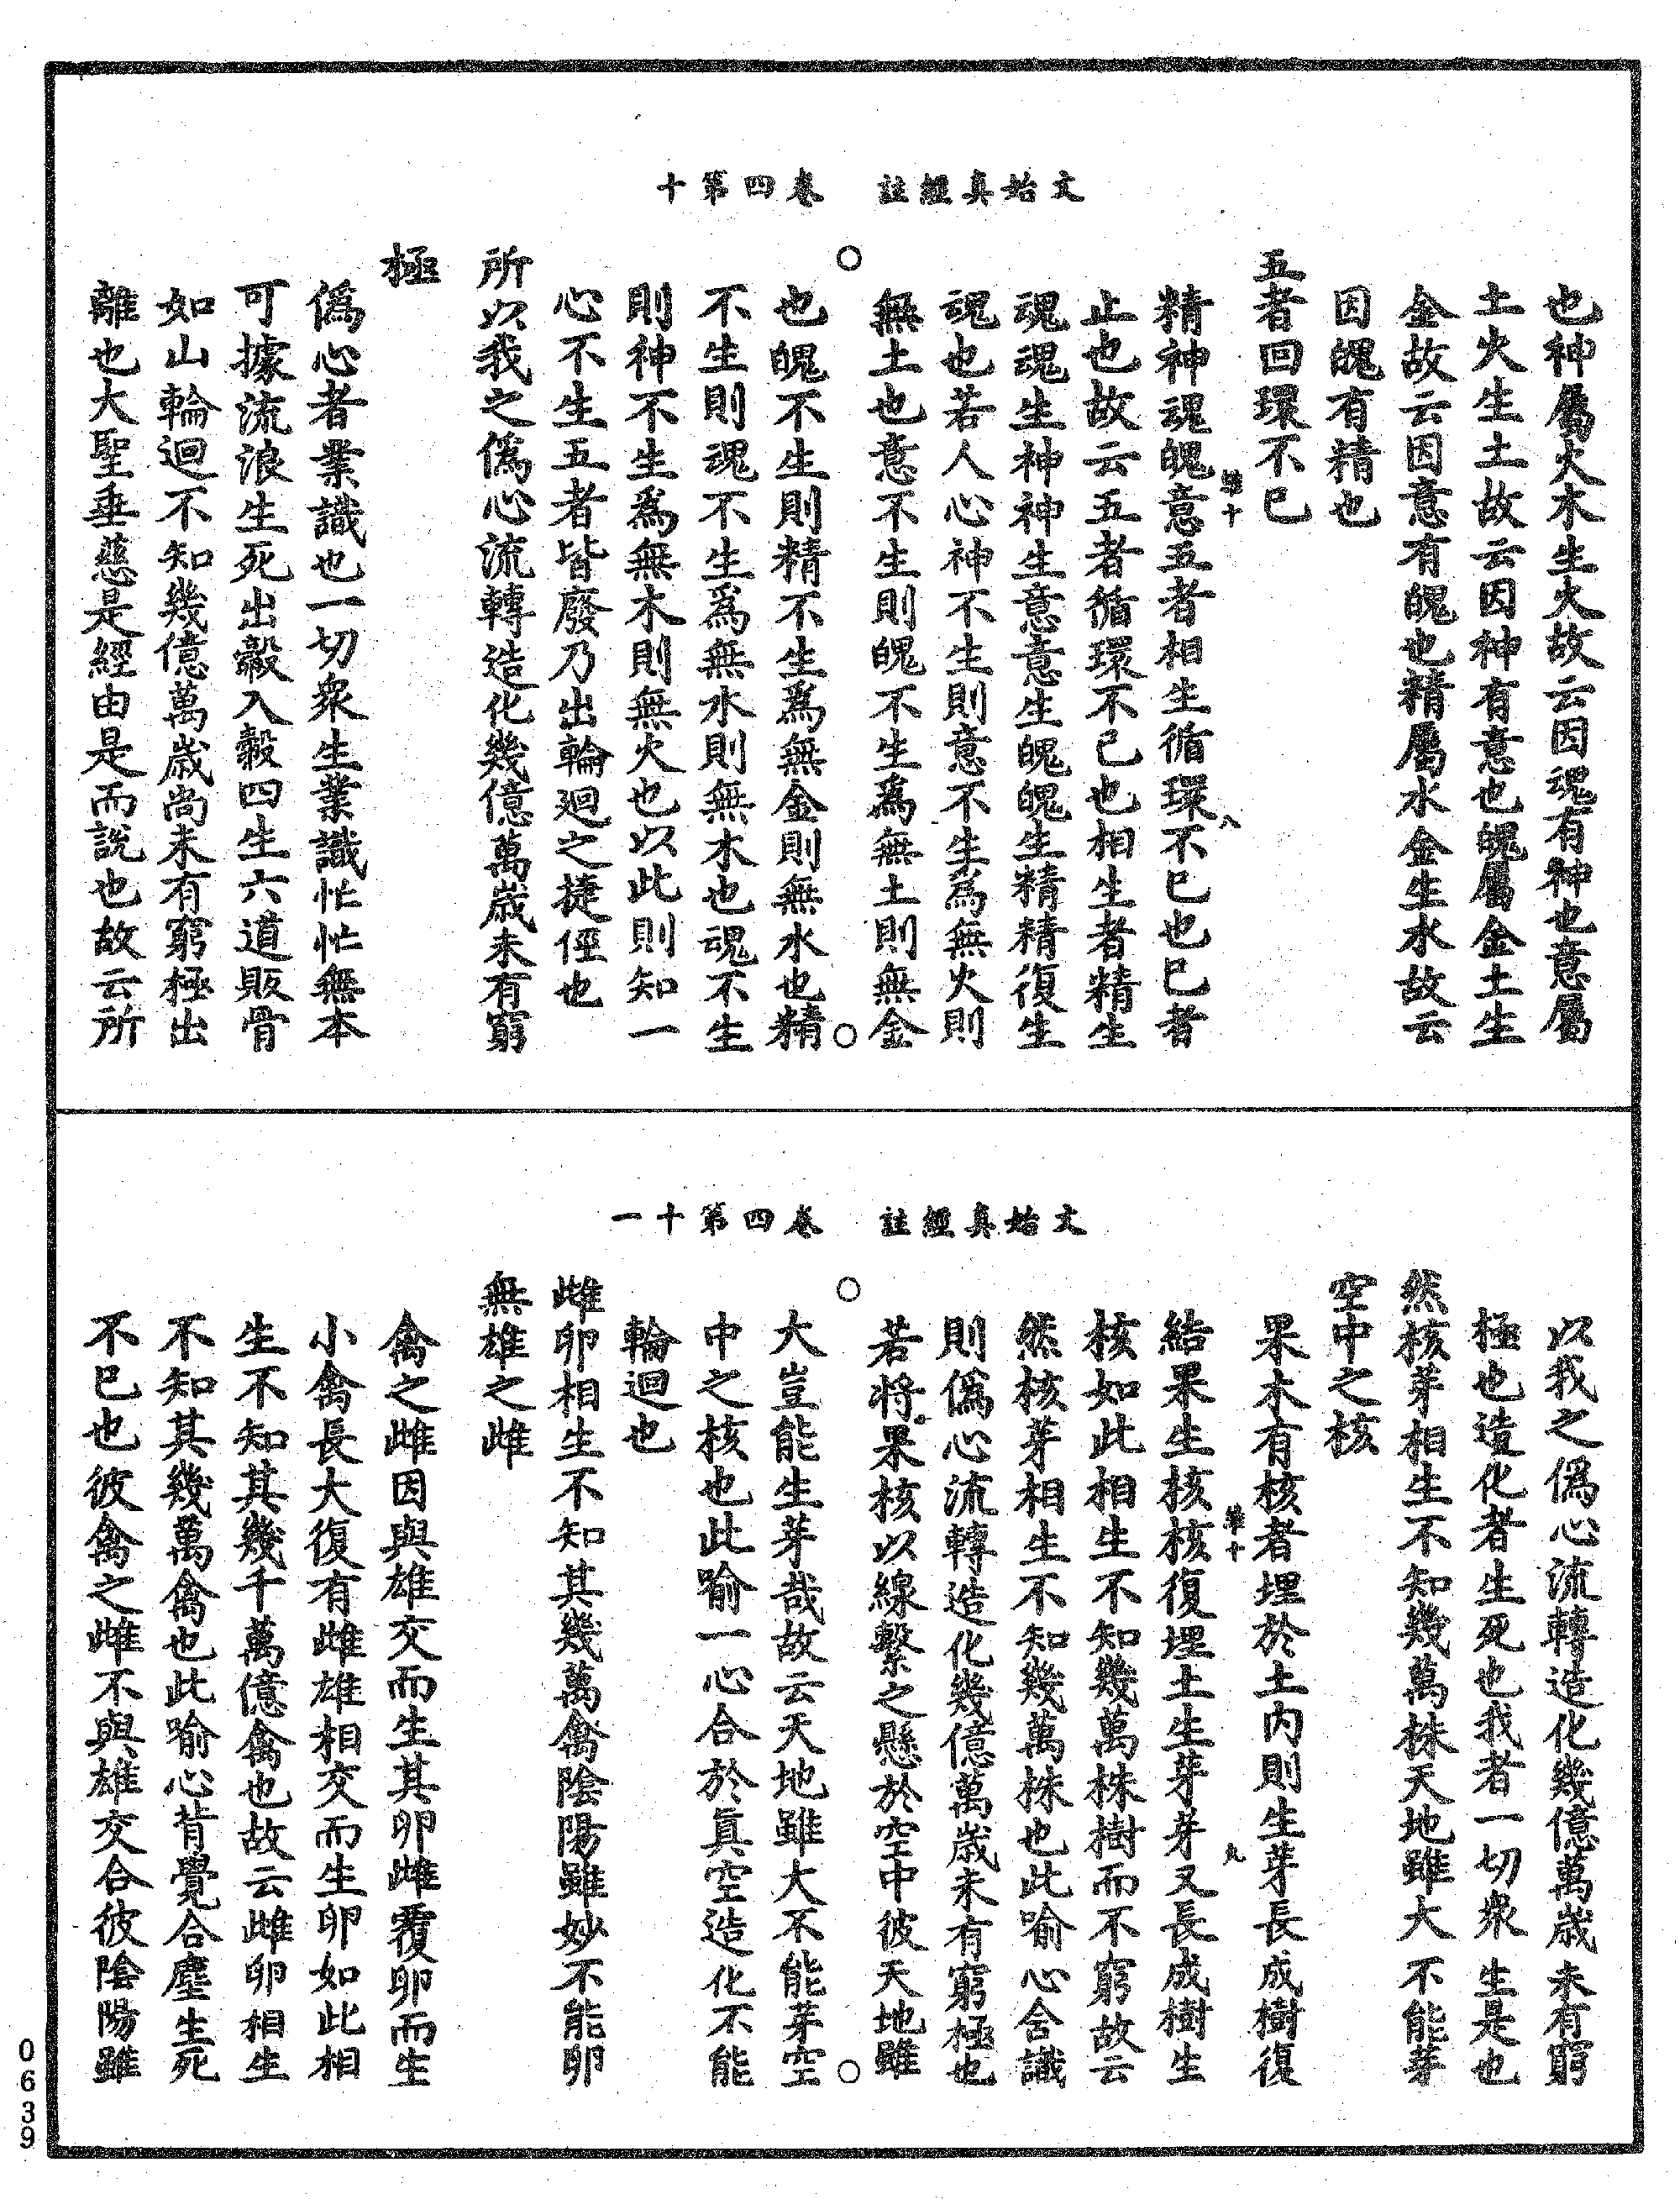 文始真經註　卷四第十
也神屬火木生火故云因魂有神也意屬
土火生土故云因神有意也魄屬金土生
金故云因意有魄也精屬水金生水故云
因魄有精也
五者回環不已
精神魂魄意五者相生循環不已也已者
止也故云五者循環不已也相生者精生
魂魂生神神生意意生魄魄生精精復生
魂也若人心神不生則意不生為無火則
無土也意不生則魄不生為無土則無金
也魄不生則精不生為無金則無水也精
不生則魂不生為無水則無木也魂不生
則神不生為無木則無火也以此則知一
心不生五者皆廢乃出輪迴之捷徑也
所以我之偽心流轉造化幾億萬歲未有窮
極
偽心者業識也一切眾生業識忙忙無本
可據流浪生死出㲉入㲉四生六道販骨
如山輪迴不知幾億萬歲尚未有窮極出
離也大聖垂慈是經由是而說也故云所
文始真經註　卷四第十一
以我之偽心流轉造化幾億萬歲未有窮
極也造化者生死也我者一切眾生是也
然核芽相生不知幾萬株天地雖大不能芽
空中之核
果木有核者埋於土內則生芽長成樹復
結果生核核復埋土生芽芽又長成樹生
核如此相生不知幾萬株樹而不窮故云
然核芽相生不知幾萬株也此喻心含識
則偽心流轉造化幾億萬歲未有窮極也
若將果核以線繫之懸於空中彼天地雖
大豈能生芽哉故云天地雖大不能芽空
中之核也此喻一心合於真空造化不能
輪迴也
雌卵相生不知其幾萬禽陰陽雖妙不能卵
無雄之雌
禽之雌因與雄交而生其卵雌覆卵而生
小禽長大復有雌雄相交而生卵如此相
生不知其幾千萬億禽也故云雌卵相生
不知其幾萬禽也此喻心背覺合塵生死
不已也彼禽之雌不與雄交合彼陰陽雖
0639